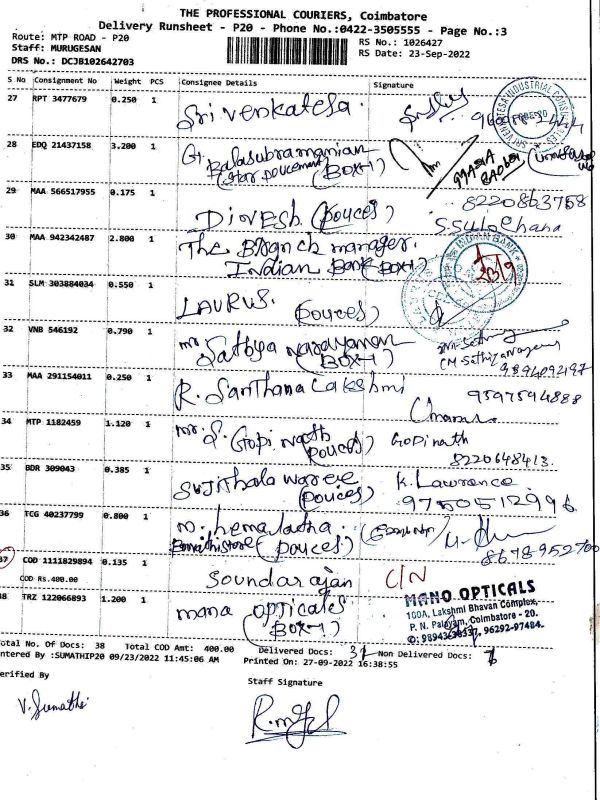 THE PROFESSIONAL COURIERS, Coimbatore
Delivery Runsheet - P20 - Phone No.:0422-3505555 - Page No.:3
Route: MTP ROAD - P20
RS No.: 1026427
Staff: MURUGESAN
RS Date: 23-Sep-2022
DRS No.: DCJB102642703
S No Consignment No Weight PCS Consignee Details Signature
27 RPT 3477679 0.250 1 Sri venkatesa
28 EDQ 21437158 3.200 1 G. Balasubramanian
(Star poucement (BOX-1)
29 MAA 566517955 0.175 1 DINESH (pouces) 8220863768
S.Sulochana
30 MAA 942342487 2.800 1 The Branch manager.
Indian Bank (BOX-1)
INDIAN BANK
31 SLM 303884034 0.550 1 LAURUS. (pouces)
32 VNB 546192 0.790 1 mr Sathya narayanan
(BOX-1)
33 MAA 291154011 0.250 1 R. Santhana Lakshmi 9597594888
34 MTP 1182459 1.120 1 mr. S. Gopi nath Gopinath
(pouces) 8220648413.
35 BDR 309043 0.385 1 Sujithala
(pouces) K. Lawrence
9750512996
36 TCG 40237799 0.800 1 m. hemalatha
(pouces) 8678952700
37 COD 1111829894 0.135 1 Soundarajan C/N
COD Rs.400.00
38 TRZ 122066893 1.200 1 mana opticales
(BOX-1)
MANO OPTICALS
100A, Lakshmi Bhavan Complex,
P. N. Palayam, Coimbatore - 20.
96292-97484.
Total No. Of Docs: 38 Total COD Amt: 400.00 Delivered Docs: 31 Non Delivered Docs: 7
Entered By :SUMATHIP20 09/23/2022 11:45:06 AM Printed On: 27-09-2022 16:38:55
Verified By
Staff Signature
V. Sumathi